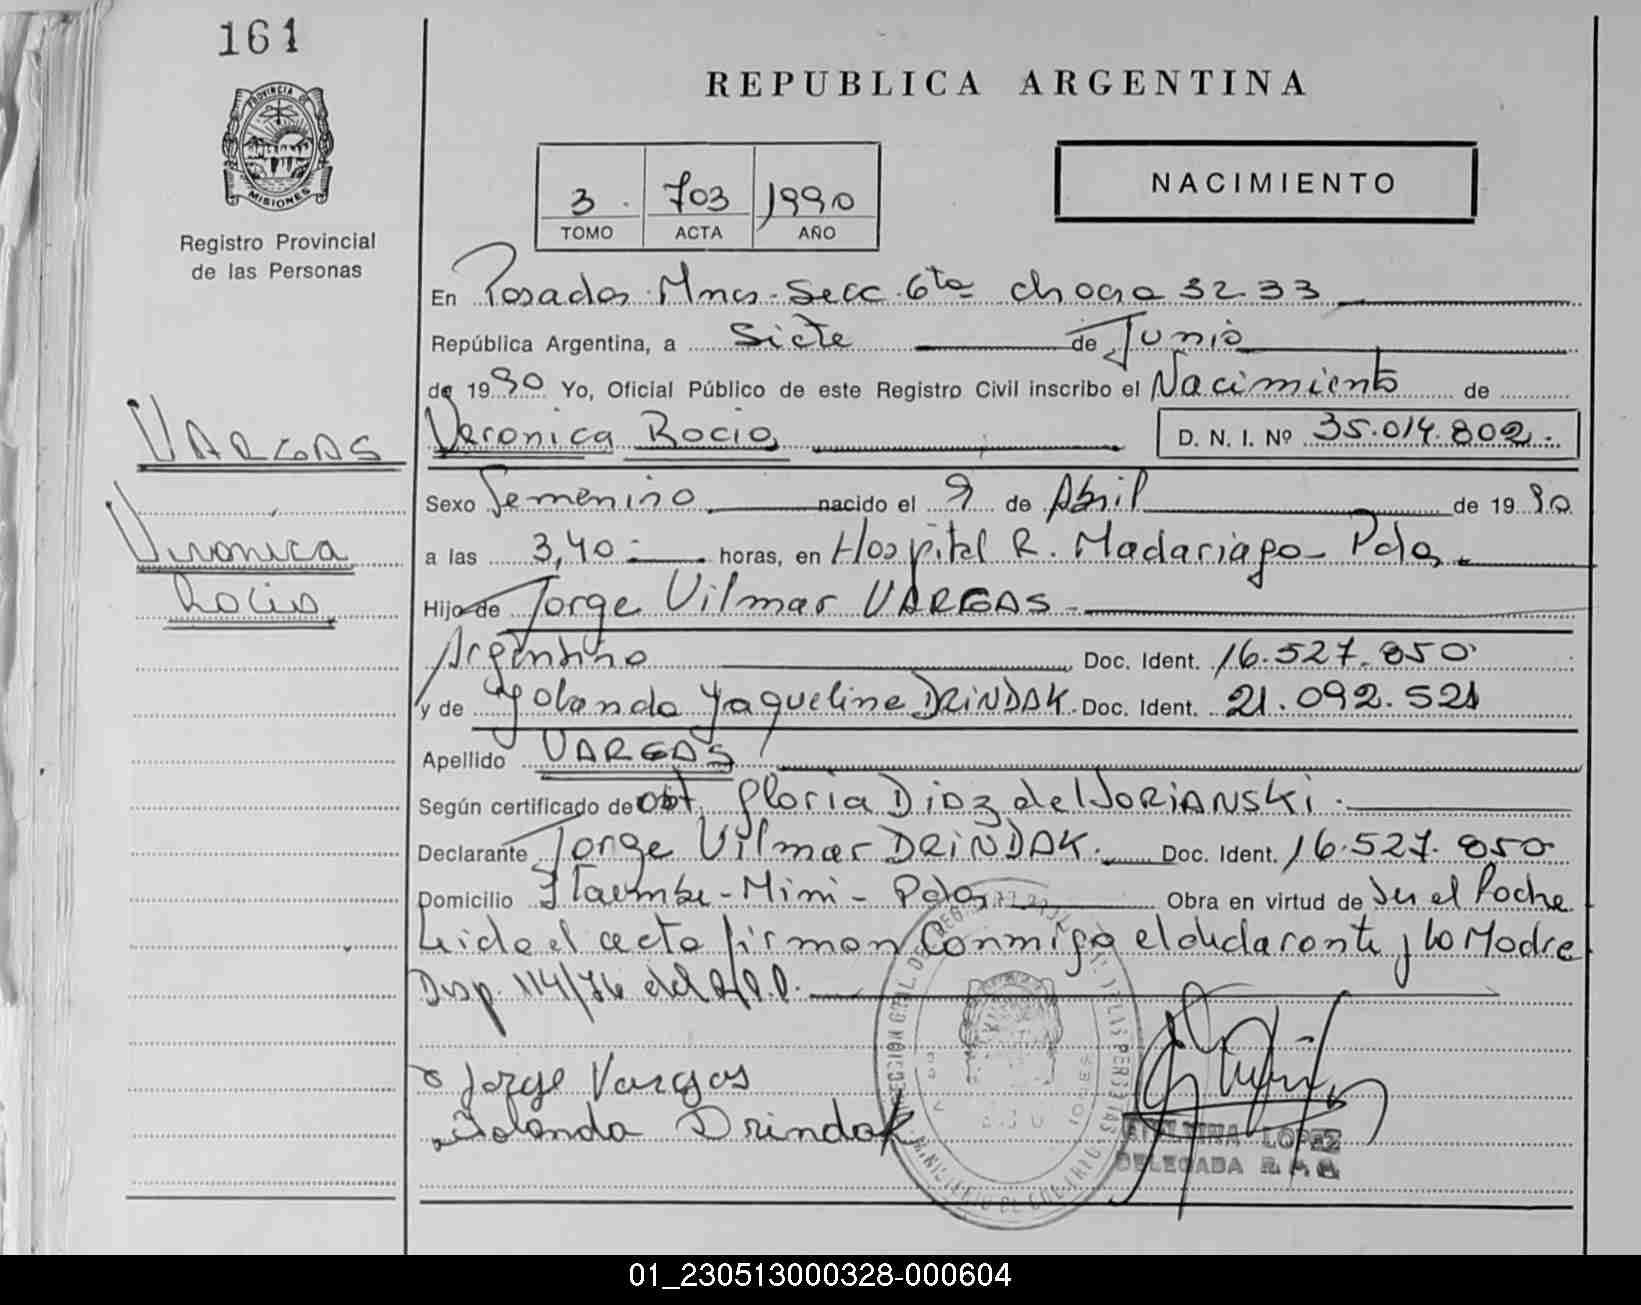 161
PROVINCIA DE
MISIONES
Registro Provincial
de las Personas
REPUBLICA ARGENTINA
3 703 1990
TOMO ACTA AÑO
NACIMIENTO
En Posadas Mnes. Secc. 6ta chacra 32 33
República Argentina, a Siete de Junio
de 1990 Yo, Oficial Público de este Registro Civil inscribo el Nacimiento de
VARGAS
Veronica Rocio D. N. I. Nº 35.014.802.
Sexo Femenino nacido el 9 de Abril de 1990
Veronica
a las 3,40 horas, en Hospital R. Madariaga - Pdas
Rocio
Hijo de Jorge Vilmar VARGAS
Argentino Doc. Ident. 16.527.850
y de Yolanda Yaqueline DRiNDAK Doc. Ident. 21.092.521
Apellido VARGAS
Según certificado de obt. Gloria Diaz del
Declarante Jorge Vilmar DRiNDAK. Doc. Ident. 16.527.850
Domicilio Itaembe - Mini - Pdas Obra en virtud de Ser el Padre
Leida el acta firman Conmigo el declarante y la Madre
Disp. 114/76 del R.P.P.
Jorge Vargas
Yolanda Drindak
LOPEZ
DELEGADA
01_230513000328-000604